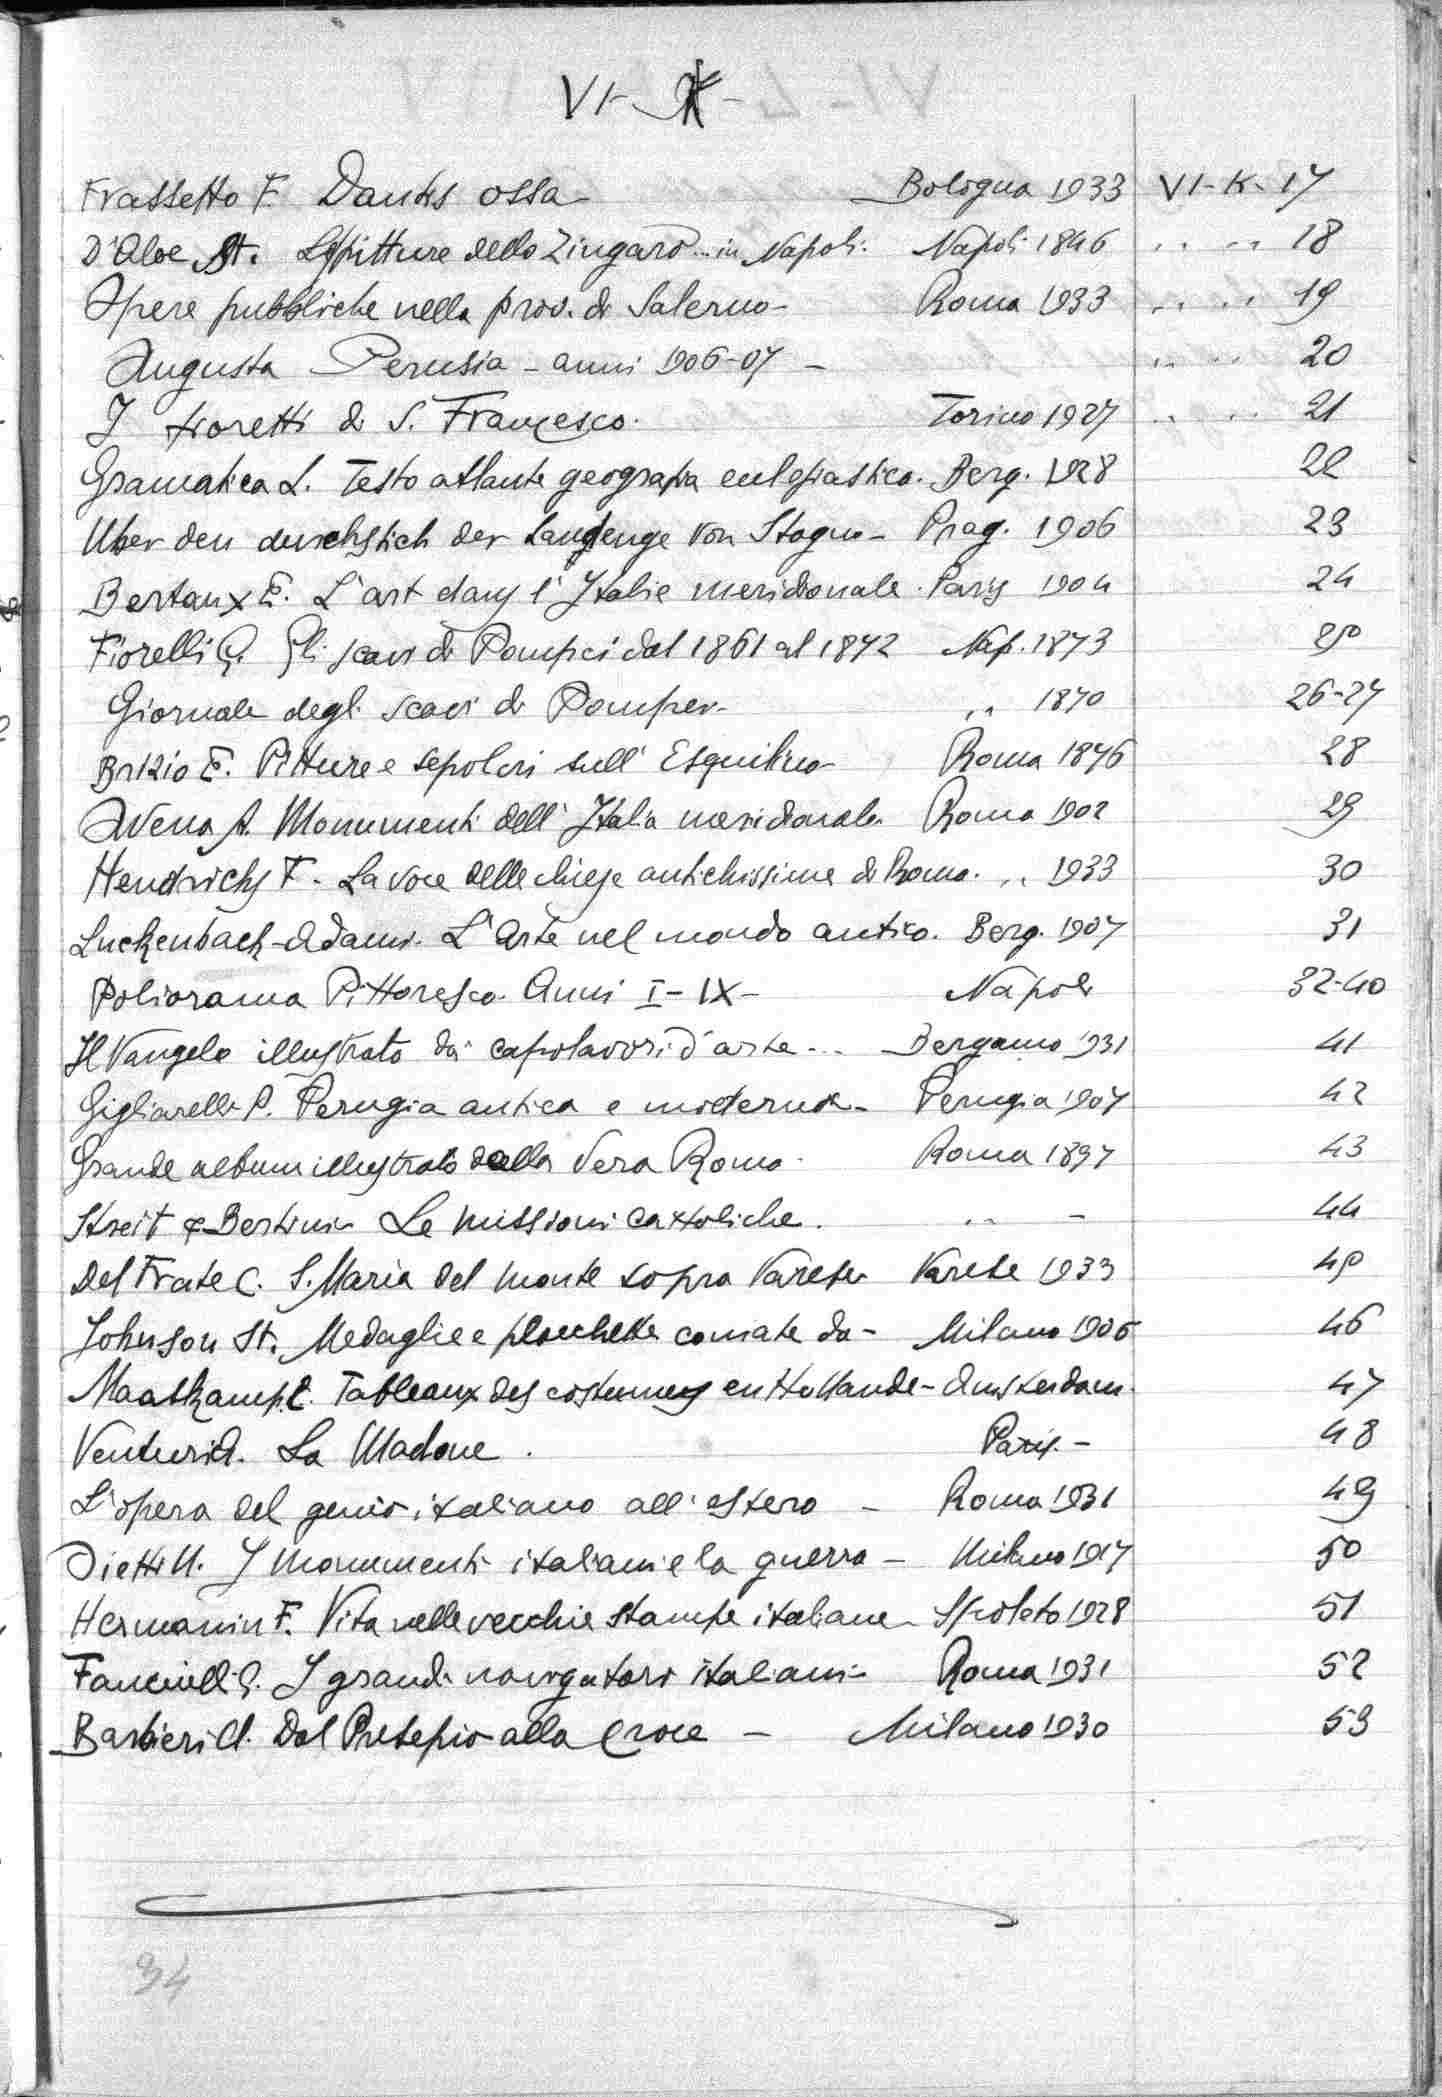 VI-K-
Frassetto F. Dantis ossa- Bologna 1933 VI-K-17
D'Aloe St. Le pitture dello Zingaro... in Napoli. Napoli 1846 " " 18
Opere pubbliche nella prov. di Salerno- Roma 1933 " " 19
Augusta Perusia - anni 1906-07 - " " 20
I fioretti di S. Francesco. Torino 1927 " " 21
Gramatica L. Testo atlante geografia ecclesiastica. Berg. 1928 22
Uber den durchstich der Landenge von Stagno- Prag. 1906 23
Bertaux E. L'art dans l'Italie meridionale. Paris 1904 24
Fiorelli G. Gli scavi di Pompei dal 1861 al 1872 Nap. 1873 25
Giornale degli scavi di Pompei- " 1870 26-27
Brizio E. Pitture e sepolcri sull'Esquilino Roma 1876 28
Avena A. Monumenti dell'Italia meridionale Roma 1902 29
Hendrichs F. La voce delle chiese antichissime di Roma. " 1933 30
Luckenbach-Adami. L'Arte nel mondo antico. Berg. 1907 31
Poliorama Pittoresco. Anni I-IX- Napoli 32-40
Il Vangelo illustrato da' capolavori d'arte... Bergamo 1931 41
Gigliarelli P. Perugia antica e moderna- Perugia 1907 42
Grande album illustrato della Vera Roma. Roma 1897 43
Streit & Bertini- Le missioni cattoliche. " - 44
Del Frate C. S. Maria del monte sopra Varese Varese 1933 45
Johnson St. Medaglie e placchette coniate da- Milano 1906 46
Maaskamp E. Tableaux des costumes en Hollande- Amsterdam. 47
Venturi A. La Madone. Paris.- 48
L'opera del genio italiano all'estero - Roma 1931 49
Ojetti U. I monumenti italiani e la guerra - Milano 1917 50
Hermanin F. Vita nelle vecchie stampe italiane- Spoleto 1928 51
Fanciulli G. I grandi navigatori italiani- Roma 1931 52
Barbieri A. Dal Presepio alla Croce - Milano 1930 53
34